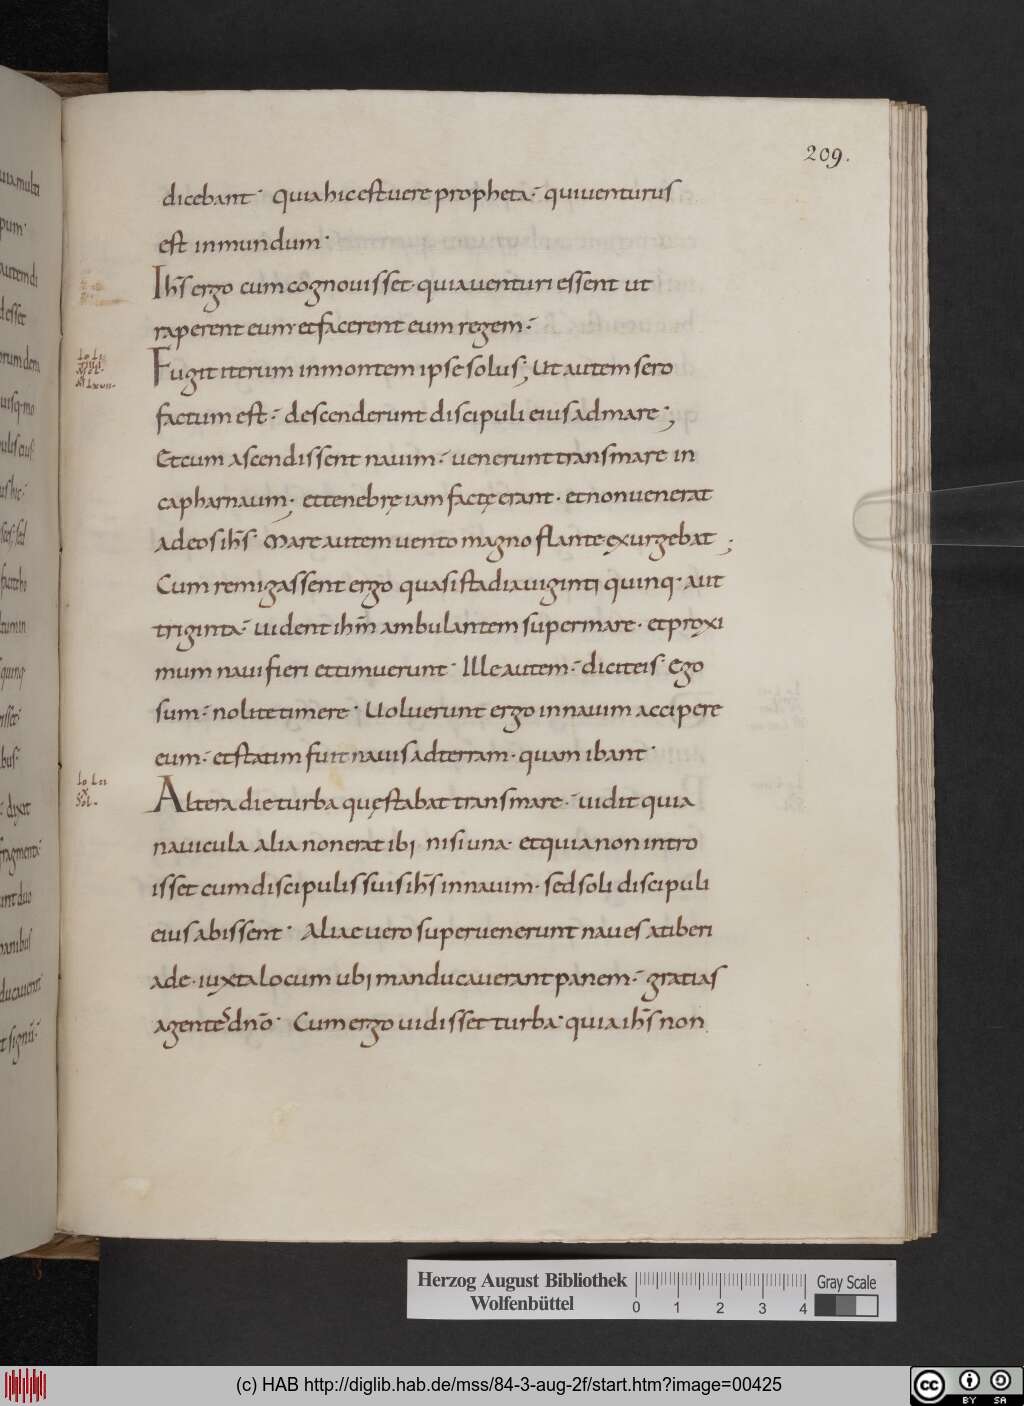 209.
dicebant· Quia hic est uere propheta· qui uenturus
est in mundum·
Ihs̄ ergo cum cognouisset· quia uenturi essent ut
raperent eum et facerent eum regem·
Fugit iterum in montem ipse solus; Ut autem sero
factum est· descenderunt discipuli eius ad mare;
Et cum ascendissent nauim· uenerunt trans mare in
capharnaum; et tenebrę iam factę erant· et non uenerat
ad eos ihs̄· Mare autem uento magno flante exurgebat;
Cum remigassent ergo quasi stadia uiginti quinq· aut
triginta· uident ihm̄ ambulantem super mare· et proxi
mum naui fieri et timuerunt· Ille autem· dicit eis· Ego
sum· nolite timere· Uoluerunt ergo in nauim accipere
eum· et statim fuit nauis ad terram· quam ibant·
Altera die turba quę stabat trans mare· uidit quia
nauicula alia non erat ibi nisi una· et quia non intro
isset cum discipulis suis ihs̄ in nauim· sed soli discipuli
eius abissent· Aliae uero superuenerunt naues a tiberi
ade· iuxta locum ubi manducauerant panem· gratias
agente dn̄o· Cum ergo uidisset turba· quia ihs̄ non
Herzog August Bibliothek
Wolfenbüttel
0 1 2 3 4
Gray Scale
(c) HAB http://diglib.hab.de/mss/84-3-aug-2f/start.htm?image=00425
cc BY SA